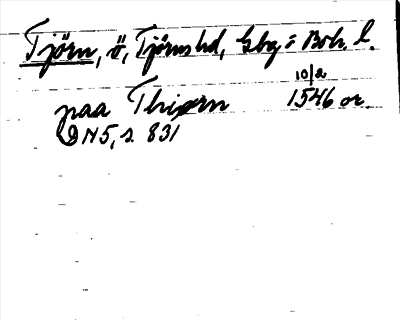 Tjörn, ö, Tjörns hd, Gbg o Boh. l.
paa Thiørn 10/2 1546 or.
DN 5, s. 831